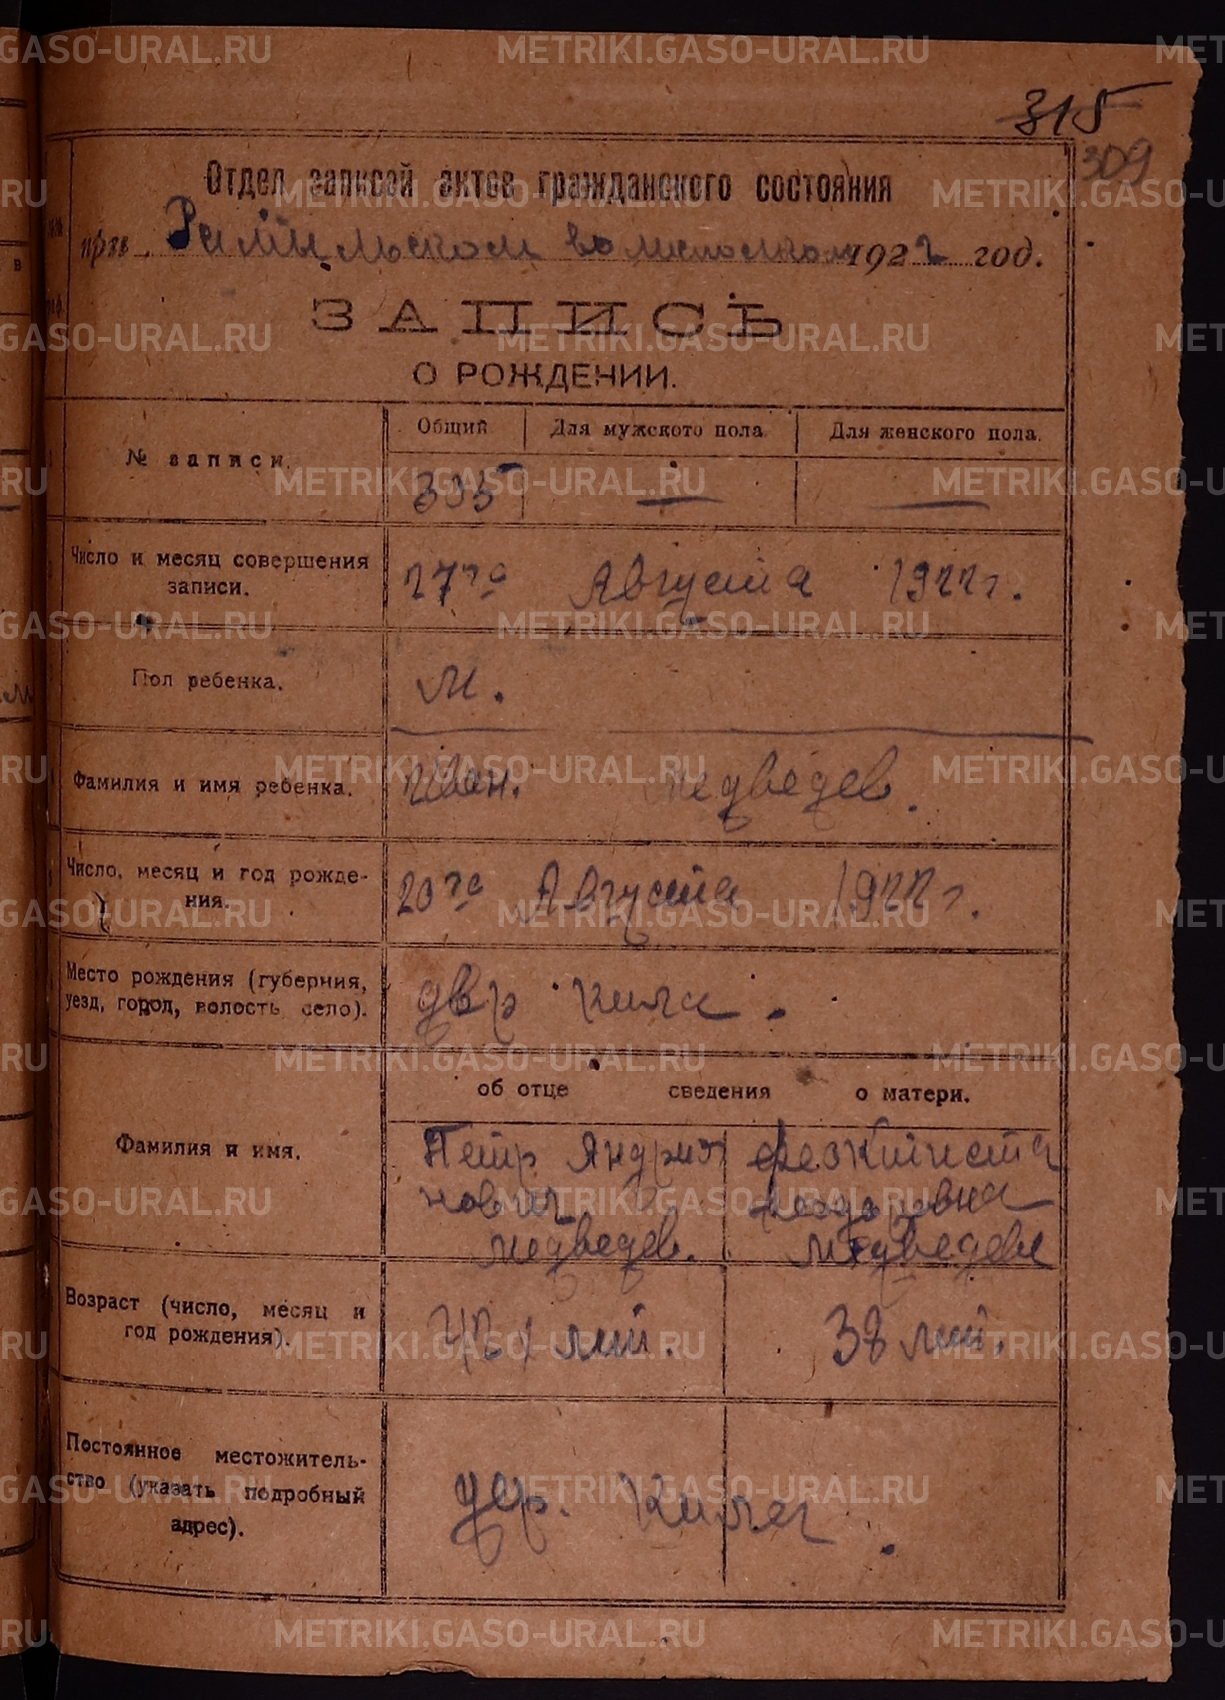 315
309
Отдел записей актов гражданского состояния
при 1922 год.
ЗАПИСЬ
О РОЖДЕНИИ.
№ записи.
Общий
Для мужского пола
Для женского пола.
335
—
—
Число и месяц совершения
записи.
27го Августа 1922 г.
Пол ребенка.
М.
Фамилия и имя ребенка.
Иван. Медведев.
Число, месяц и год рожде-
ния.
20го Августа 1922 г.
Место рождения (губерния,
уезд, город, волость село).
дер Кила.
об отце сведения о матери.
Фамилия и имя.
Петр Андрия
нович
Медведев.
Феоктиста
Федоровна
Медведева
Возраст (число, месяц и
год рождения).
лет.
38 лет.
Постоянное местожитель-
ство (указать подробный
адрес).
дер. Кила.
METRIKI.GASO-URAL.RU